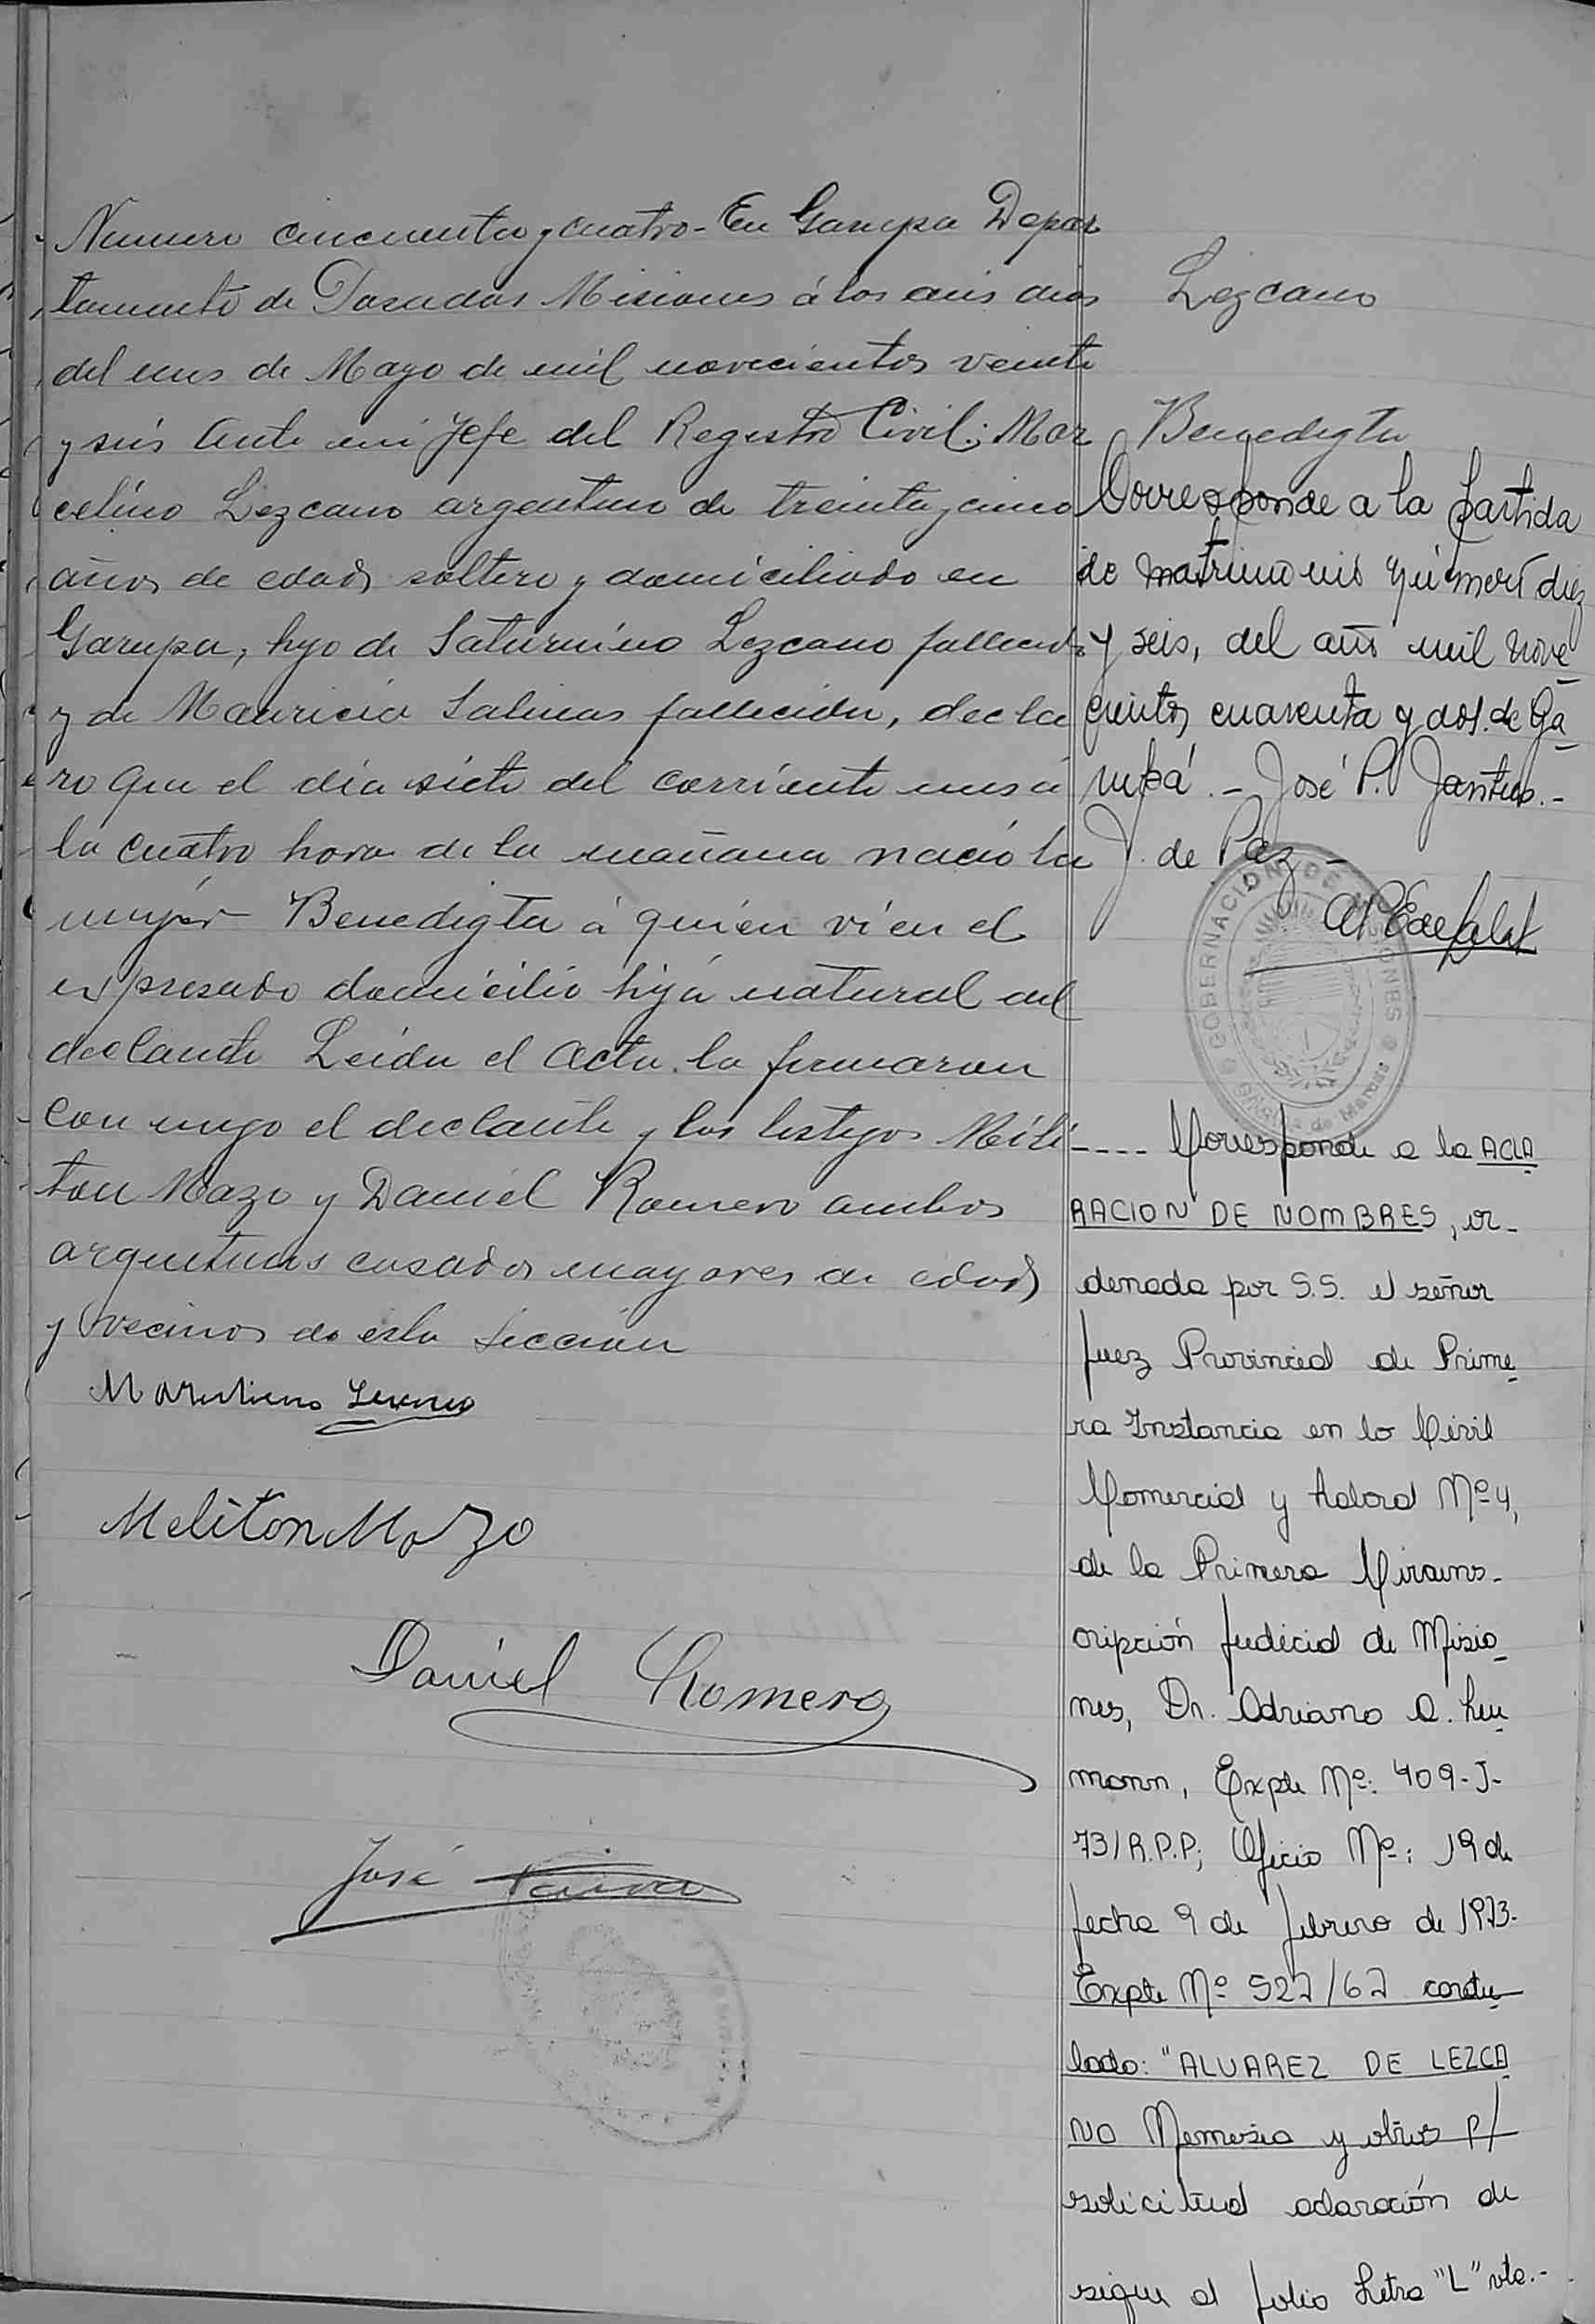 Numero cincuenta y cuatro - En Garupa Depar
tamento de Posadas Misiones á los dies dias
del mes de Mayo de mil novecientos veinte
y seis Ante mi Jefe del Registro Civil; Mar
celino Lezcano argentino de treinta y cinco
años de edad soltero y domiciliado en
Garupa, hijo de Saturnino Lezcano fallecido
y de Mauricia Salinas fallecida, decla
ro que el dia siete del corriente mes a
la cuatro hora de la mañana nació la
mujer Benedigta á quien vi en el
expresado domicilio hija natural del
declante Leida el Acta la firmaron
con migo el declante y los testigos Meli
ton Mazo y Daniel Romero ambos
argentinos casados mayores de edad
y vecinos de esta Sección
Meliton Mazo
Daniel Romero
José Paiva
Lezcano
Benedigta
Corresponde a la partida
de matrimonio número diez
y seis, del año mil nove
cientos cuarenta y dos. de Ga
rupá. - José P. Santus. -
J. de Paz -
GOBERNACION DE MISIONES
---- Corresponde a la ACLA
RACION DE NOMBRES, or-
denada por S.S. el señor
Juez Provincial de Prime
ra Instancia en lo Civil
Comercial y Laboral Nº 4,
de la Primera Circuns-
cripción Judicial de Misio
nes, Dr. Adriano A. Leu
mann, Expte Nº: 409-J-
73/R.P.P; Oficio Nº: 19 de
fecha 9 de febrero de 1973.
Expte Nº 527/67 caratu
lado: "ALVAREZ DE LEZCA
NO Nemesia y otros p/
solicitud aclaración de
sigue al folio Letra "L" vto.-